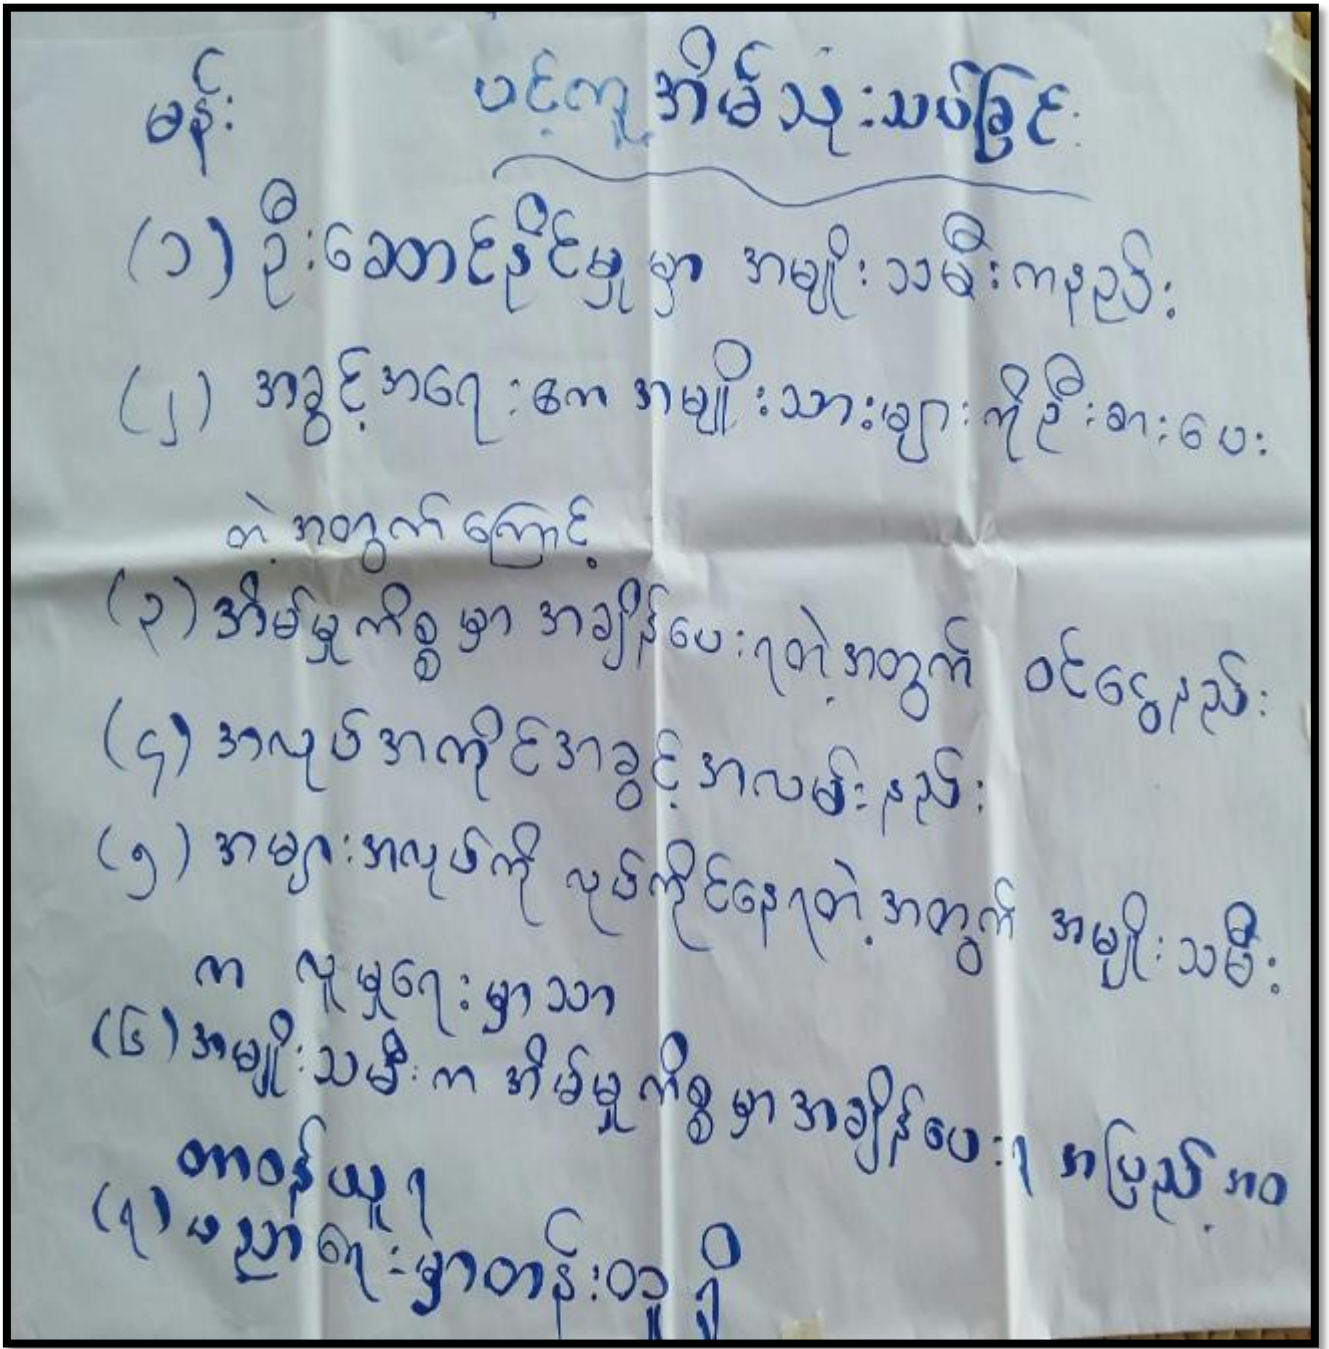 မှန်း ပင့်ကူအိမ်သုံးသပ်ခြင်း
(၁) ဦးဆောင်နိုင်မှုမှာ အမျိုးသမီးကနည်း
(၂) အခွင့်အရေးက အမျိုးသားများကိုဦးစားပေး
တဲ့အတွက်ကြောင့်
(၃) အိမ်မှုကိစ္စမှာ အချိန်ပေးရတဲ့အတွက် ဝင်ငွေနည်း
(၄) အလုပ်အကိုင်အခွင့်အလမ်းနည်း
(၅) အများအလုပ်ကို လုပ်ကိုင်နေရတဲ့အတွက် အမျိုးသမီး
က လူမှုရေးမှာသာ
(၆) အမျိုးသမီးက အိမ်မှုကိစ္စမှာအချိန်ပေးရ အပြည့်အဝ
တာဝန်ယူရ
(၇) ပညာရေးမှာတန်းတူရှိ